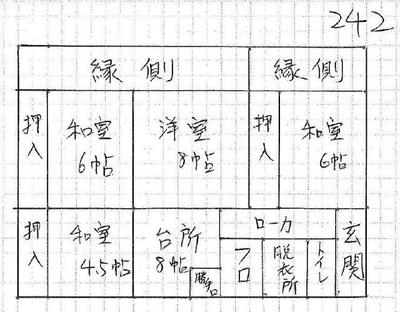 242
縁側
縁側
押入
和室
6帖
洋室
8帖
押入
和室
6帖
押入
和室
4.5帖
台所
8帖
勝手口
ローカ
フロ
脱衣所
トイレ
玄関